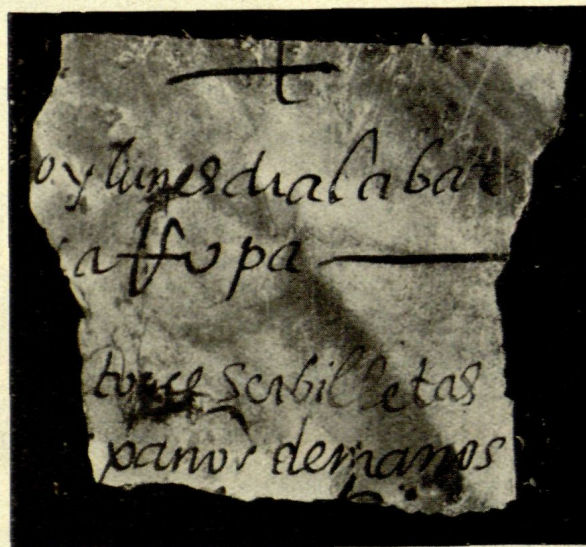 oy lunes dia labar
a rropa
torce serbilletas
panos de manos